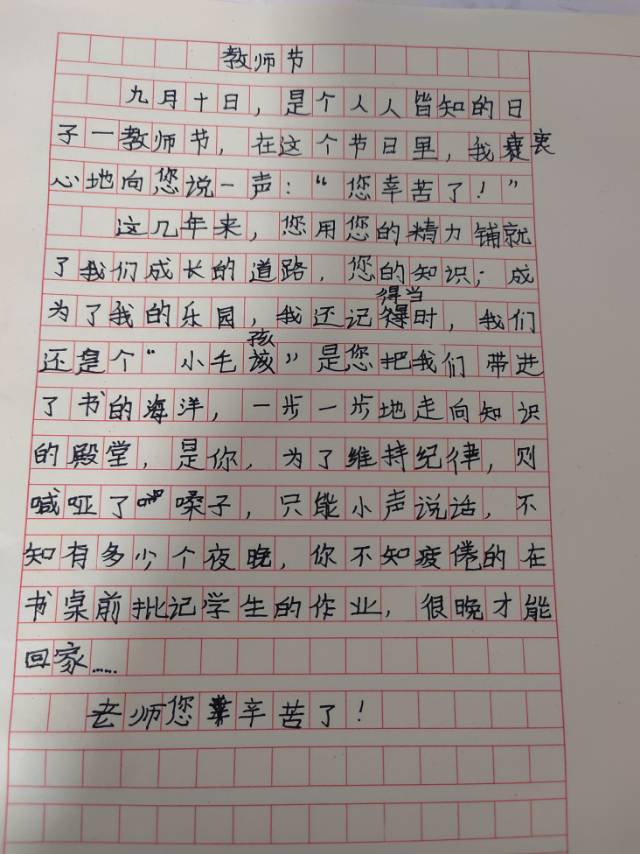 教师节
九月十日，是个人人皆知的日
子一教师节，在这个节日里，我衷
心地向您说一声：“您幸苦了！”
这几年来，您用您的精力铺就
了我们成长的道路，您的知识；成
为了我的乐园，我还记得当时，我们
还是个“小毛孩”是您把我们带进
了书的海洋，一步一步地走向知识
的殿堂，是你，为了维持纪律，则
喊哑了嗓子，只能小声说话，不
知有多少个夜晚，你不知疲倦的在
书桌前批记学生的作业，很晚才能
回家……
老师您辛苦了！